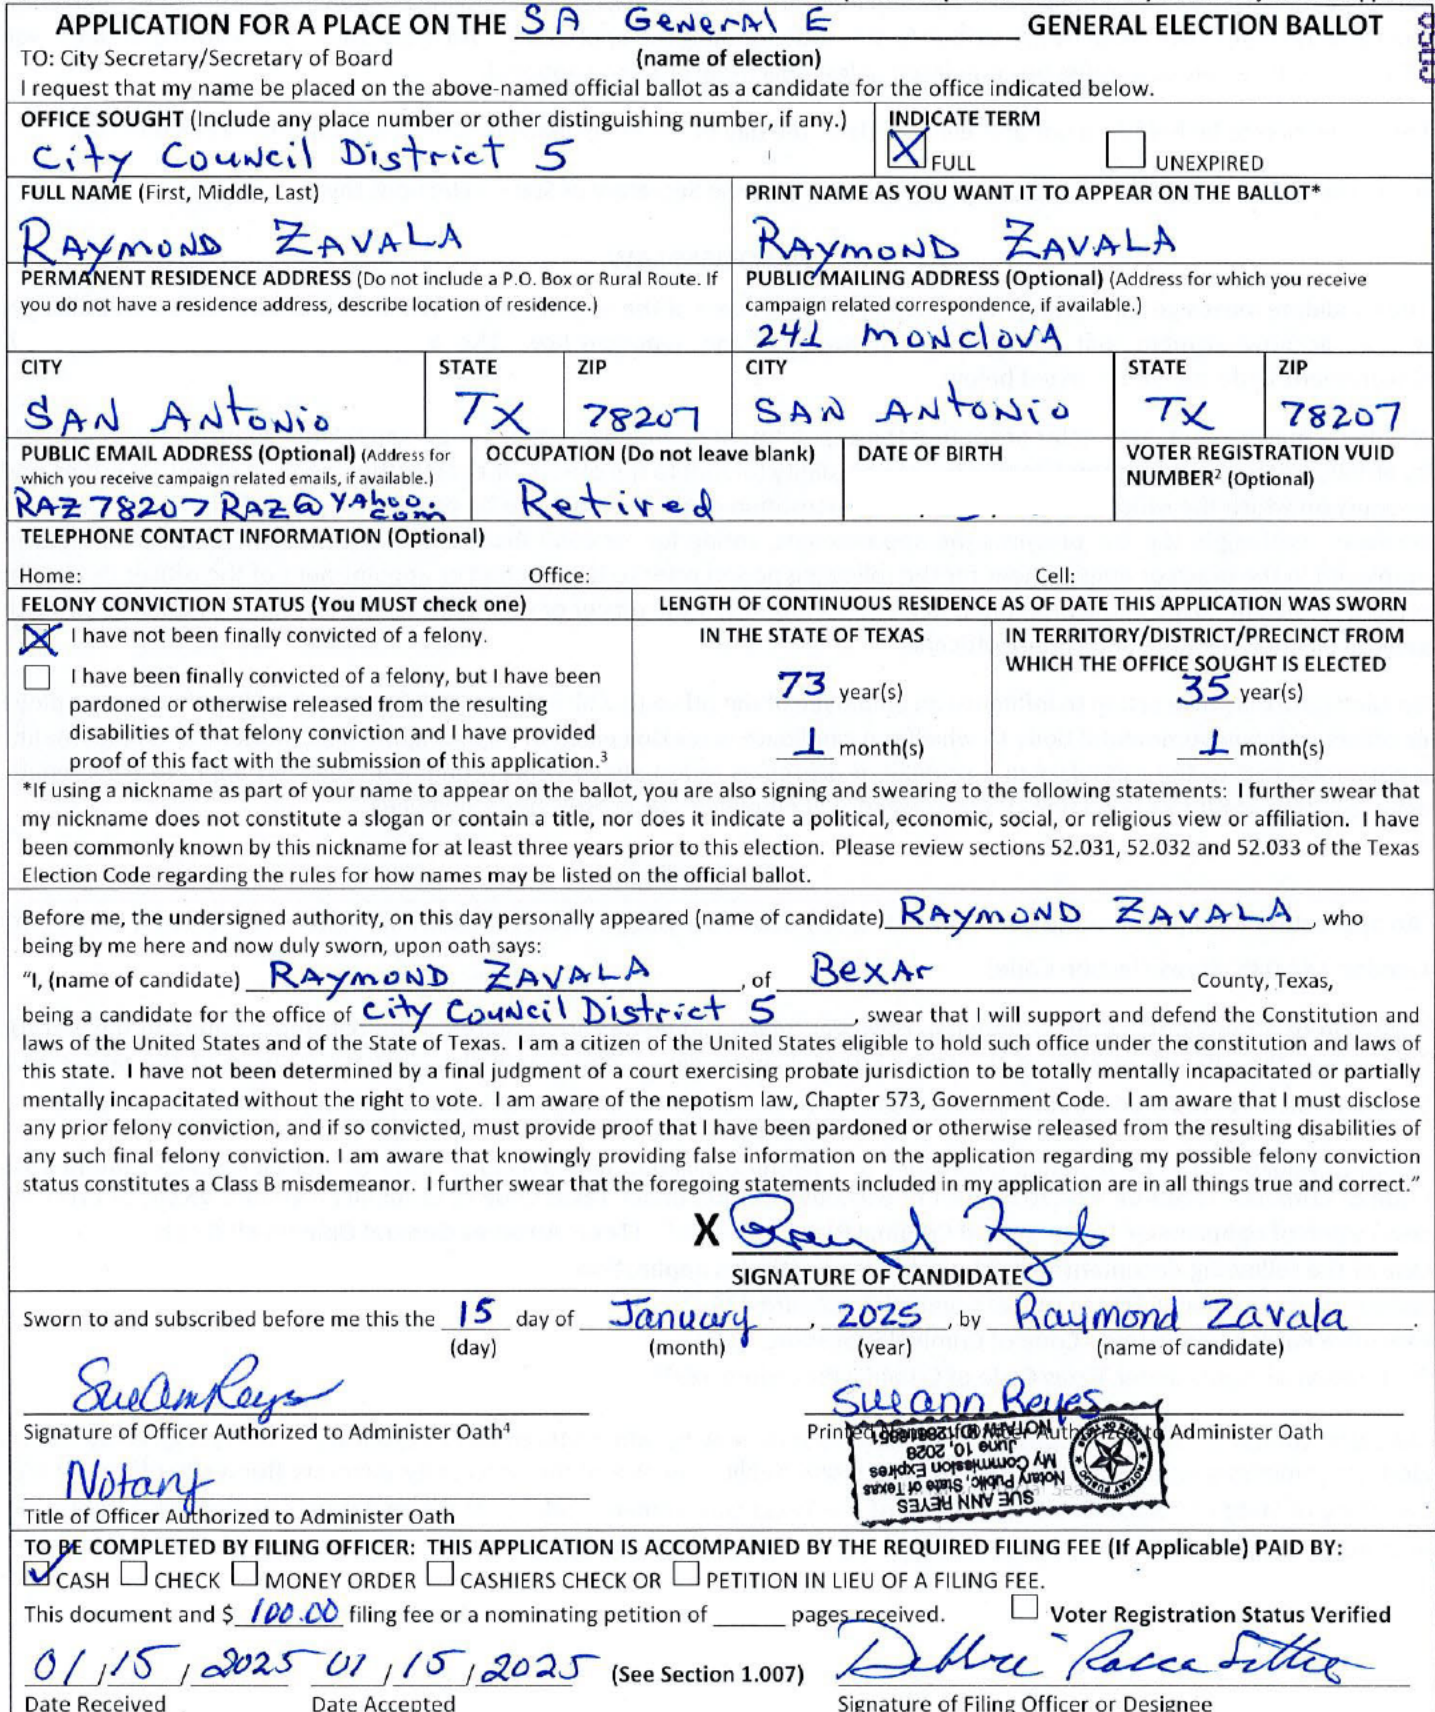 APPLICATION FOR A PLACE ON THE SA General E GENERAL ELECTION BALLOT
TO: City Secretary/Secretary of Board (name of election)
I request that my name be placed on the above-named official ballot as a candidate for the office indicated below.
OFFICE SOUGHT (Include any place number or other distinguishing number, if any.) INDICATE TERM
City Council District 5 X FULL UNEXPIRED
FULL NAME (First, Middle, Last) PRINT NAME AS YOU WANT IT TO APPEAR ON THE BALLOT*
RAYMOND ZAVALA RAYMOND ZAVALA
PERMANENT RESIDENCE ADDRESS (Do not include a P.O. Box or Rural Route. If PUBLIC MAILING ADDRESS (Optional) (Address for which you receive
you do not have a residence address, describe location of residence.) campaign related correspondence, if available.)
241 MONCLOVA
CITY STATE ZIP CITY STATE ZIP
SAN ANTONIO TX 78207 SAN ANTONIO TX 78207
PUBLIC EMAIL ADDRESS (Optional) (Address for OCCUPATION (Do not leave blank) DATE OF BIRTH VOTER REGISTRATION VUID
which you receive campaign related emails, if available.) NUMBER² (Optional)
RAZ78207RAZ@YAhoo.com Retired
TELEPHONE CONTACT INFORMATION (Optional)
Home: Office: Cell:
FELONY CONVICTION STATUS (You MUST check one) LENGTH OF CONTINUOUS RESIDENCE AS OF DATE THIS APPLICATION WAS SWORN
X I have not been finally convicted of a felony. IN THE STATE OF TEXAS IN TERRITORY/DISTRICT/PRECINCT FROM
WHICH THE OFFICE SOUGHT IS ELECTED
I have been finally convicted of a felony, but I have been
pardoned or otherwise released from the resulting 73 year(s) 35 year(s)
disabilities of that felony conviction and I have provided
proof of this fact with the submission of this application.³ 1 month(s) 1 month(s)
*If using a nickname as part of your name to appear on the ballot, you are also signing and swearing to the following statements: I further swear that
my nickname does not constitute a slogan or contain a title, nor does it indicate a political, economic, social, or religious view or affiliation. I have
been commonly known by this nickname for at least three years prior to this election. Please review sections 52.031, 52.032 and 52.033 of the Texas
Election Code regarding the rules for how names may be listed on the official ballot.
Before me, the undersigned authority, on this day personally appeared (name of candidate) RAYMOND ZAVALA, who
being by me here and now duly sworn, upon oath says:
"I, (name of candidate) RAYMOND ZAVALA, of BEXAr County, Texas,
being a candidate for the office of City Council District 5, swear that I will support and defend the Constitution and
laws of the United States and of the State of Texas. I am a citizen of the United States eligible to hold such office under the constitution and laws of
this state. I have not been determined by a final judgment of a court exercising probate jurisdiction to be totally mentally incapacitated or partially
mentally incapacitated without the right to vote. I am aware of the nepotism law, Chapter 573, Government Code. I am aware that I must disclose
any prior felony conviction, and if so convicted, must provide proof that I have been pardoned or otherwise released from the resulting disabilities of
any such final felony conviction. I am aware that knowingly providing false information on the application regarding my possible felony conviction
status constitutes a Class B misdemeanor. I further swear that the foregoing statements included in my application are in all things true and correct."
X
SIGNATURE OF CANDIDATE
Sworn to and subscribed before me this the 15 day of January, 2025, by Raymond Zavala.
(day) (month) (year) (name of candidate)
Sue Ann Reyes Sue ann Reyes
Signature of Officer Authorized to Administer Oath⁴ Printed Authorized to Administer Oath
Notary
SUE ANN REYES
Notary Public, State of Texas
My Commission Expires
June 10, 2028
Title of Officer Authorized to Administer Oath
TO BE COMPLETED BY FILING OFFICER: THIS APPLICATION IS ACCOMPANIED BY THE REQUIRED FILING FEE (If Applicable) PAID BY:
CASH CHECK MONEY ORDER CASHIERS CHECK OR PETITION IN LIEU OF A FILING FEE.
This document and $ 100.00 filing fee or a nominating petition of ______ pages received. Voter Registration Status Verified
01/15/2025 01/15/2025 (See Section 1.007)
Date Received Date Accepted Signature of Filing Officer or Designee